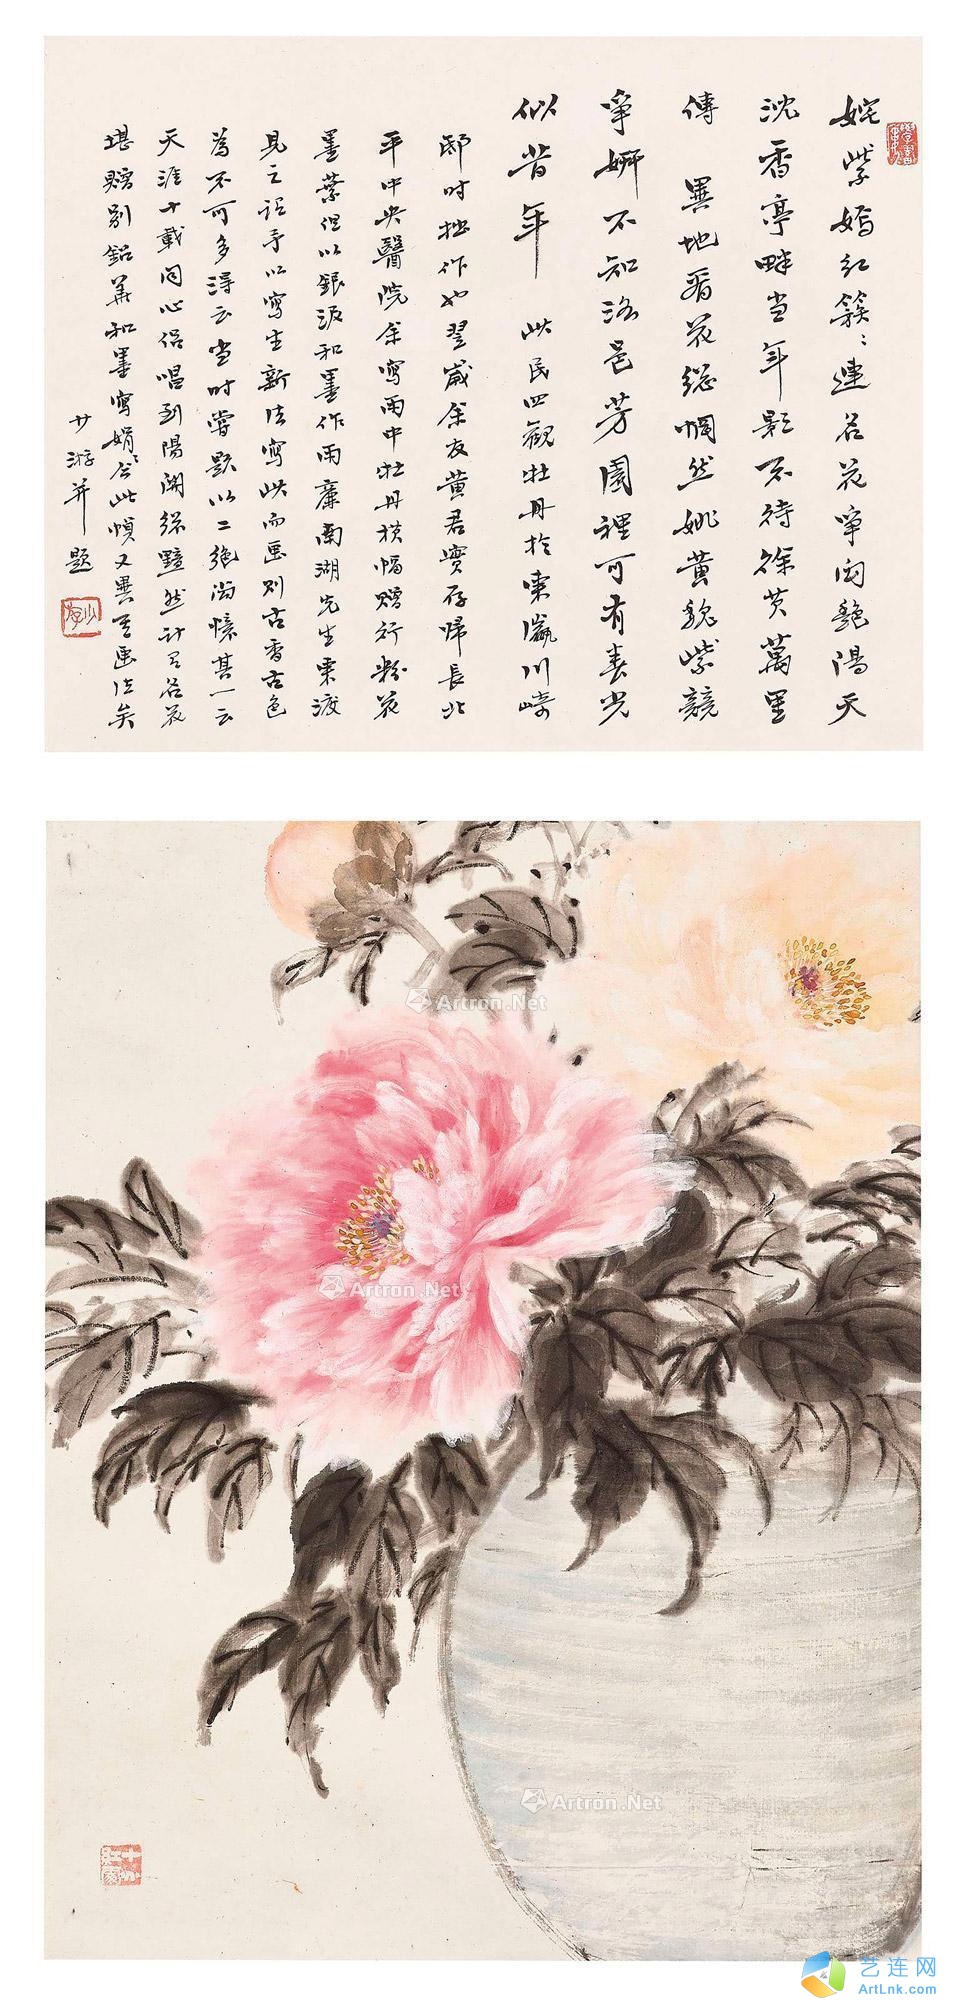 姹紫嫣红簇〻連名花爭鬥艷陽天
沈香亭畔当年影不待徐黄萬里
傳 異地看花總惘然姚黄魏紫競
爭妍不知洛邑芳園裡可有春光
似昔年 此民四觀牡丹於東瀛川崎
邸时拙作也翌歲余友黄君實存歸長北
平中央醫院余寫雨中牡丹横幅贈行粉花
墨葉但以銀泥和墨作雨廉南湖先生東渡
見之詫予以寫生新法寫此而画則古香古色
為不可多得云当时嘗題以二絶尚憶其一云
天涯十載同心侣唱到陽關總黯然计有名花
堪贈别鉛華和墨寫娟〻此幀又異其画法矣
少游并題
Artron.Net
Artron.Net
Artron.Net
艺连网
ArtLnk.com